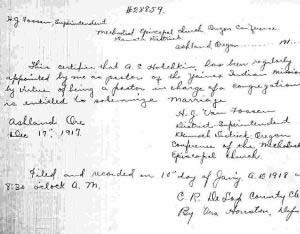 #28859.
H.J. Van Fossen, Superintendent
Methodist Episcopal Church Oregon Conference
Klamath District
Ashland, Oregon ........ 191..
This certifies that A.C. Hotchkin, has been regularly
appointed by me as pastor of the Yainax Indian Mission
by virtue of being a pastor in charge of a congregation
is entitled to solemnize Marriage
H.J. Van Fossen
District Superintendent
Klamath District, Oregon
Conference of the Methodist
Episcopal Church.
Ashland, Ore
Dec 17th, 1917.
Filed and recorded on 10th day of Jan'y A.D. 1918 at
8:30 o'clock A.M.
C.R. De Lap County
By Houston,